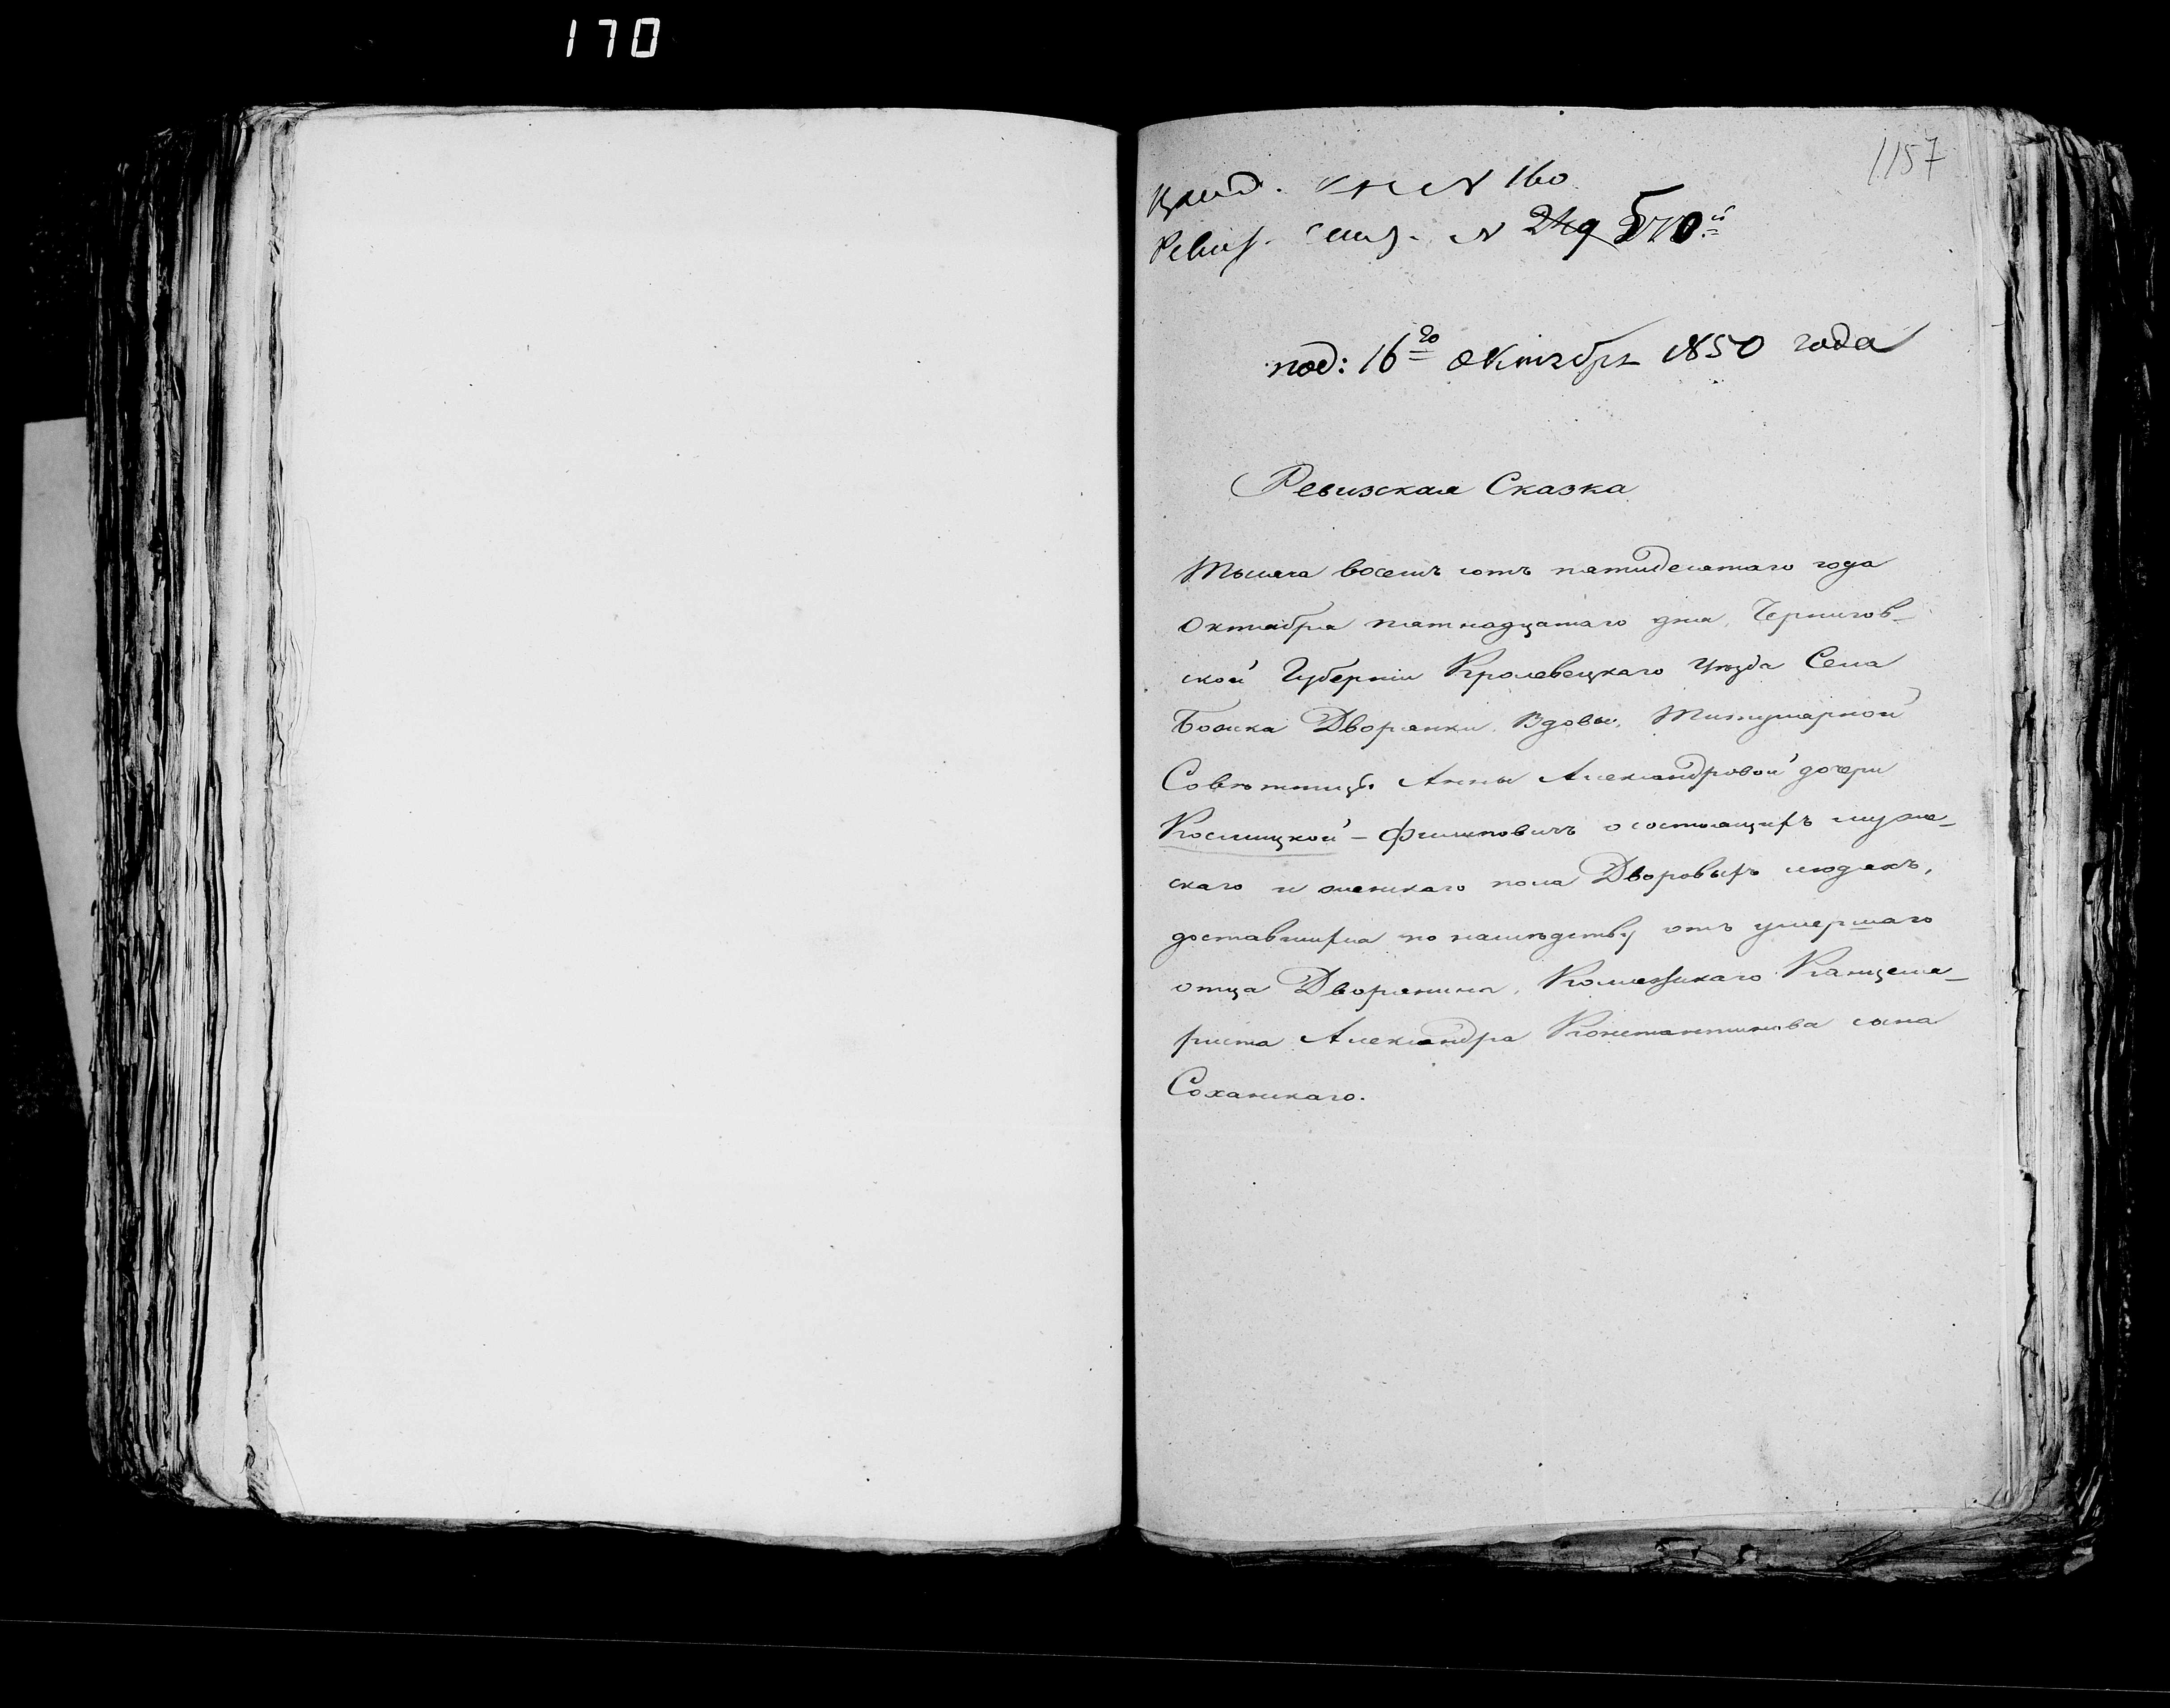 170
1157
N 160
Ревиз. N 249 570й
под: 16го Октября 1850 года
Ревизская Сказка
Тысяча восемь сотъ пятидесятаго года
Октября пятнадцатаго дня, Чернигов-
ской Губерніи Кролевецкаго Уѣзда Села
Дворянки Вдовы, Титулярной
Совѣтницы Анны Александровой дочери
Косицкой - Филиповичъ о состоящихъ муже-
скаго и женскаго пола Дворовыхъ людяхъ,
доставшихся по наслѣдству отъ умершаго
отца Дворянина, Коллежскаго Канцеля-
риста Александра Константинова сына
Соханскаго.